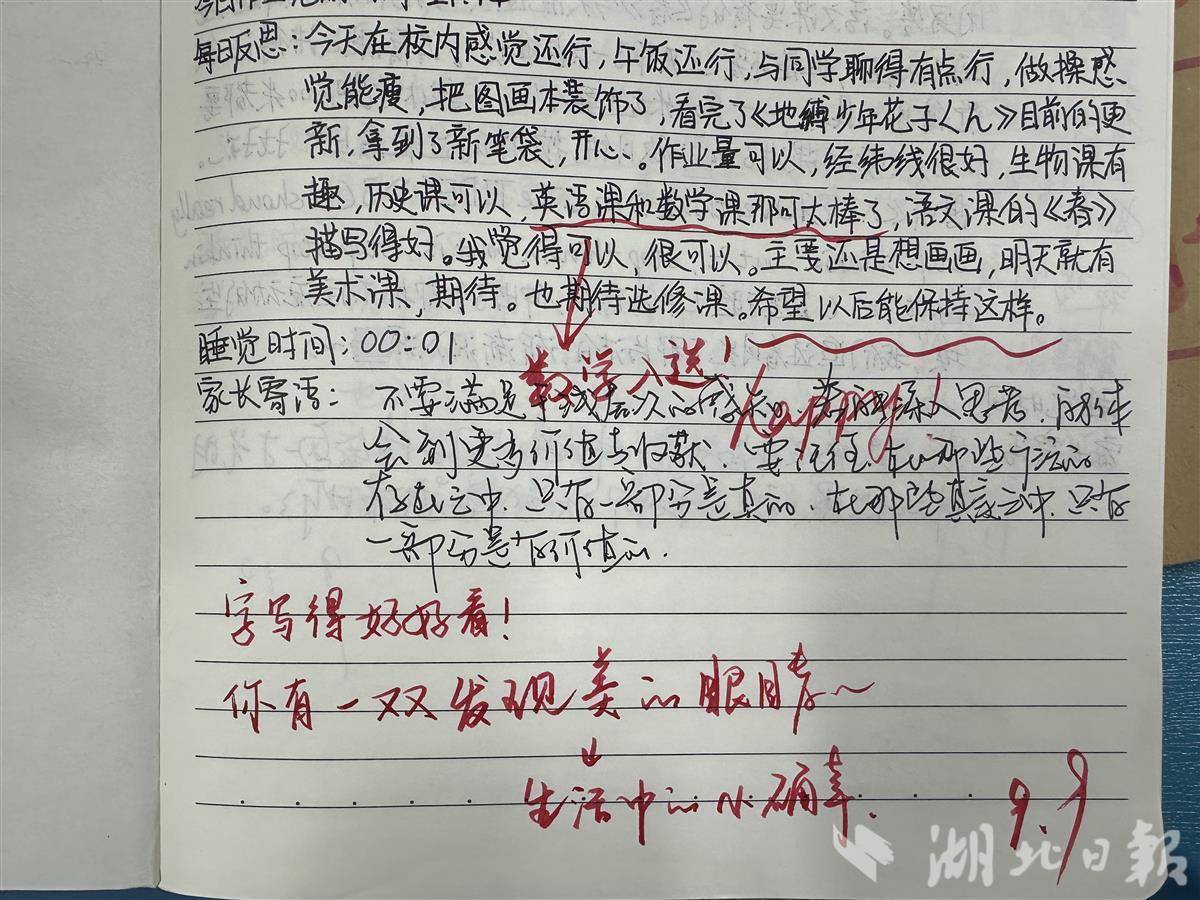 每日反思：今天在校内感觉还行，午饭还行，与同学聊得有点行，做操感
觉能瘦，把图画本装饰了，看完了《地缚少年花子くん》目前的更
新，拿到了新笔袋，开心、。作业量可以，经纬线很好，生物课有
趣，历史课可以，英语课和数学课那可太棒了，语文课的《春》
描写得好。我觉得可以，很可以。主要还是想画画，明天就有
美术课，期待。也期待选修课。希望以后能保持这样。
睡觉时间：00：01
数学入选！
happy！
家长寄语： 不要满足 浅层次的 深入思考，
会到更多价值与收获，要记住，在那些 的
存在之中，只有一部分是真的，在那些真 之中，只有
一部分是有价值的．
字写得好好看！
你有一双发现美的眼睛～
生活中的小确幸．
9.9
湖北日报